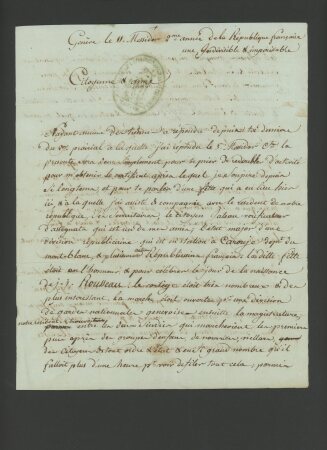 Genève le 11. Messidor 2me année de la République françoise
une, Indivisible & impérissable
Citoyenne & amie
N'ayant aucune de tienne à repondre depuis ta derniere
du prairial à laquelle j'ai repondu le 5. Messidor Ct. la
presente sera donc simplement pour te prier de redoubler d'activité
pour m'obtenir le certificat après lequel je soupire depuis
si longtems et pour te parler d'une fête qui a eu lieu hier
ici & à laquelle j'ai assisté en compagnie avec le resident de notre
république, le
d'allegeats qui est un de mes amis, l'etat major d'une
division républicaine qui est en station à Carouge dept. du
mont blanc, & plusieurs Républicains français; ladite fête
étoit en l'honneur & pour célébrer le jour de la naissance
de J. J. Rousseau. le cortège étoit très nombreux & des
plus interessant. La marche étoit ouverte pr. une division
de gardes nationales genevoises ensuite la magistrature,
notre résident
entre les deux
puis après des groupes d'enfans, de nourrices, vieillards,
des Citoyens de tout ordre & état & en si grand nombre qu'il
falloit plus d'une heure pr. voir defiler tout cela; parmi